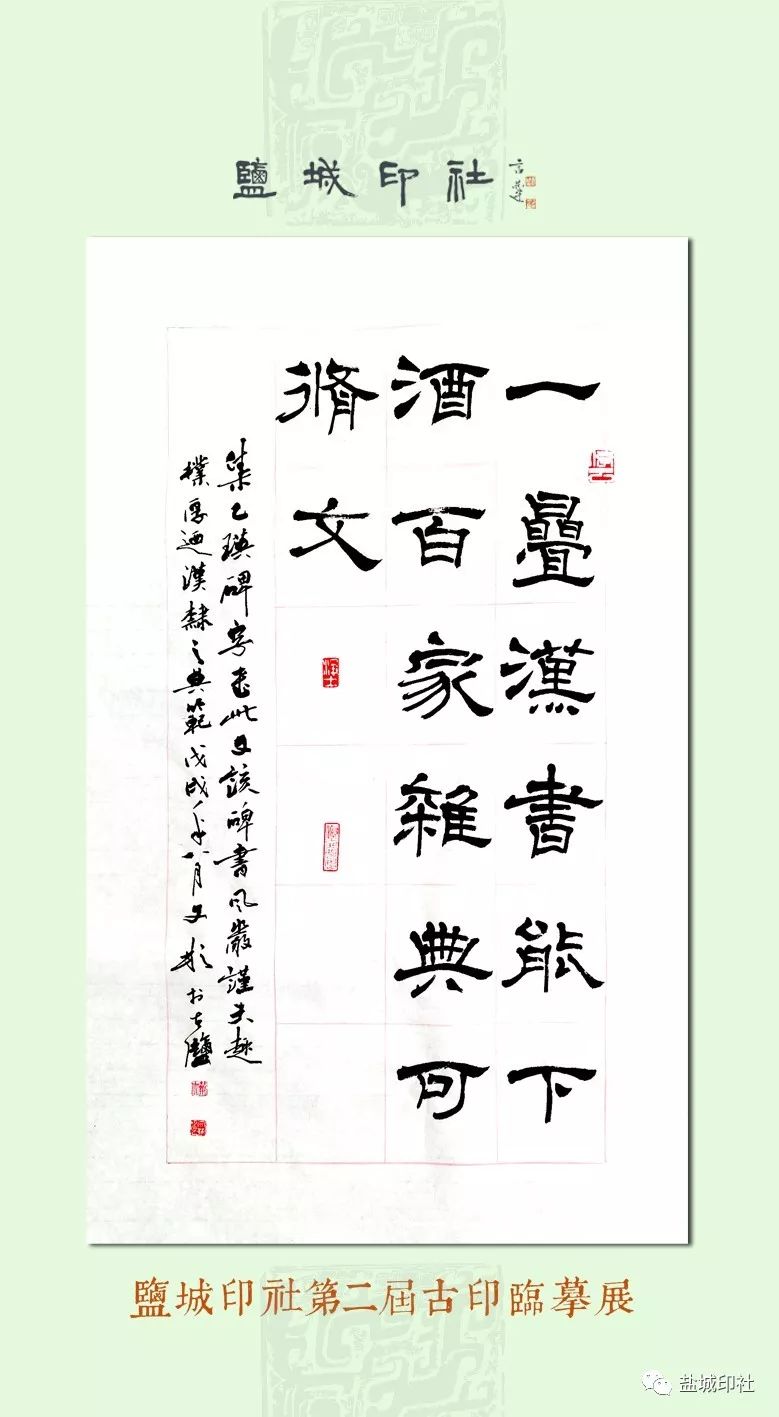 鹽城印社
一疊漢書能下
酒百家雜典可
脩文
集乙瑛碑字成此文該碑書風嚴謹夫趣
樸厚迺漢隸之典範戊戌年八月文彬於古鹽
鹽城印社第二屆古印臨摹展
盐城印社